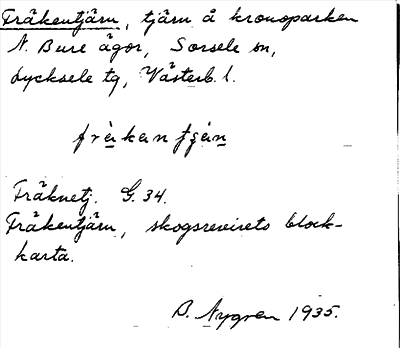 Fräkentjärn, tjärn å kronoparken
N. Bure ägor, Sorsele sn,
Lycksele tg, Västerb. l.
fràkantjàn
Fräknetj. G. 34.
Fräkentjärn, skogsrevirets block-
karta.
B. Nygren 1935.